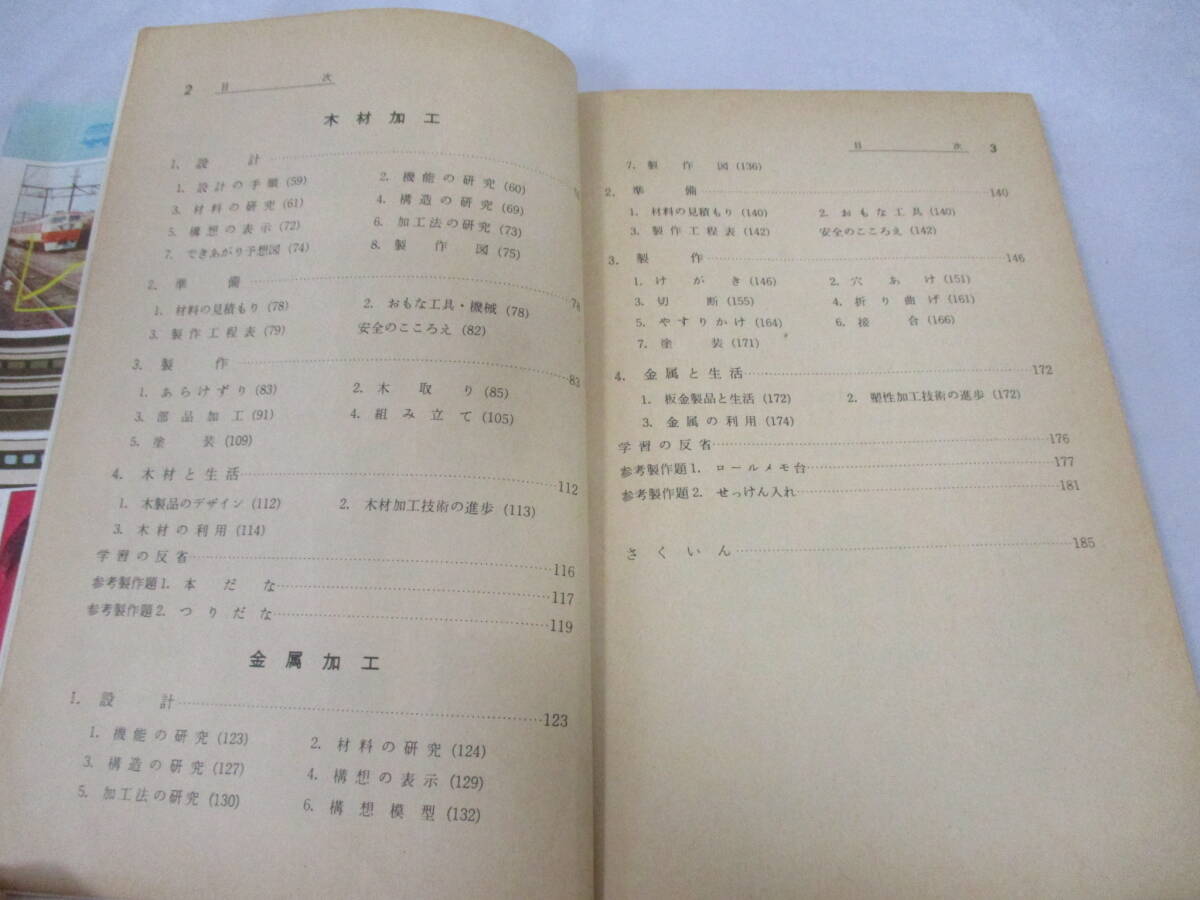 2 目 次
木材加工
1. 設 計
1. 設計の手順 (59) 2. 機能の研究 (60)
3. 材料の研究 (61) 4. 構造の研究 (69)
5. 構想の表示 (72) 6. 加工法の研究 (73)
7. できあがり予想図 (74) 8. 製 作 図 (75)
2. 準 備 78
1. 材料の見積もり (78) 2. おもな工具・機械 (78)
3. 製作工程表 (79) 安全のこころえ (82)
3. 製 作 83
1. あらけずり (83) 2. 木 取 り (85)
3. 部品加工 (91) 4. 組み立て (105)
5. 塗 装 (109)
4. 木材と生活 112
1. 木製品のデザイン (112) 2. 木材加工技術の進歩 (113)
3. 木材の利用 (114)
学習の反省 116
参考製作題1. 本だな 117
参考製作題2. つりだな 119
金属加工
1. 設 計 123
1. 機能の研究 (123) 2. 材料の研究 (124)
3. 構造の研究 (127) 4. 構想の表示 (129)
5. 加工法の研究 (130) 6. 構想模型 (132)
目 次 3
7. 製 作 図 (136)
2. 準 備 140
1. 材料の見積もり (140) 2. おもな工具 (140)
3. 製作工程表 (142) 安全のこころえ (142)
3. 製 作 146
1. けがき (146) 2. 穴あけ (151)
3. 切 断 (155) 4. 折り曲げ (161)
5. やすりかけ (164) 6. 接 合 (166)
7. 塗 装 (171)
4. 金属と生活 172
1. 板金製品と生活 (172) 2. 塑性加工技術の進歩 (172)
3. 金属の利用 (174)
学習の反省 176
参考製作題1. ロールメモ台 177
参考製作題2. せっけん入れ 181
さくいん 185